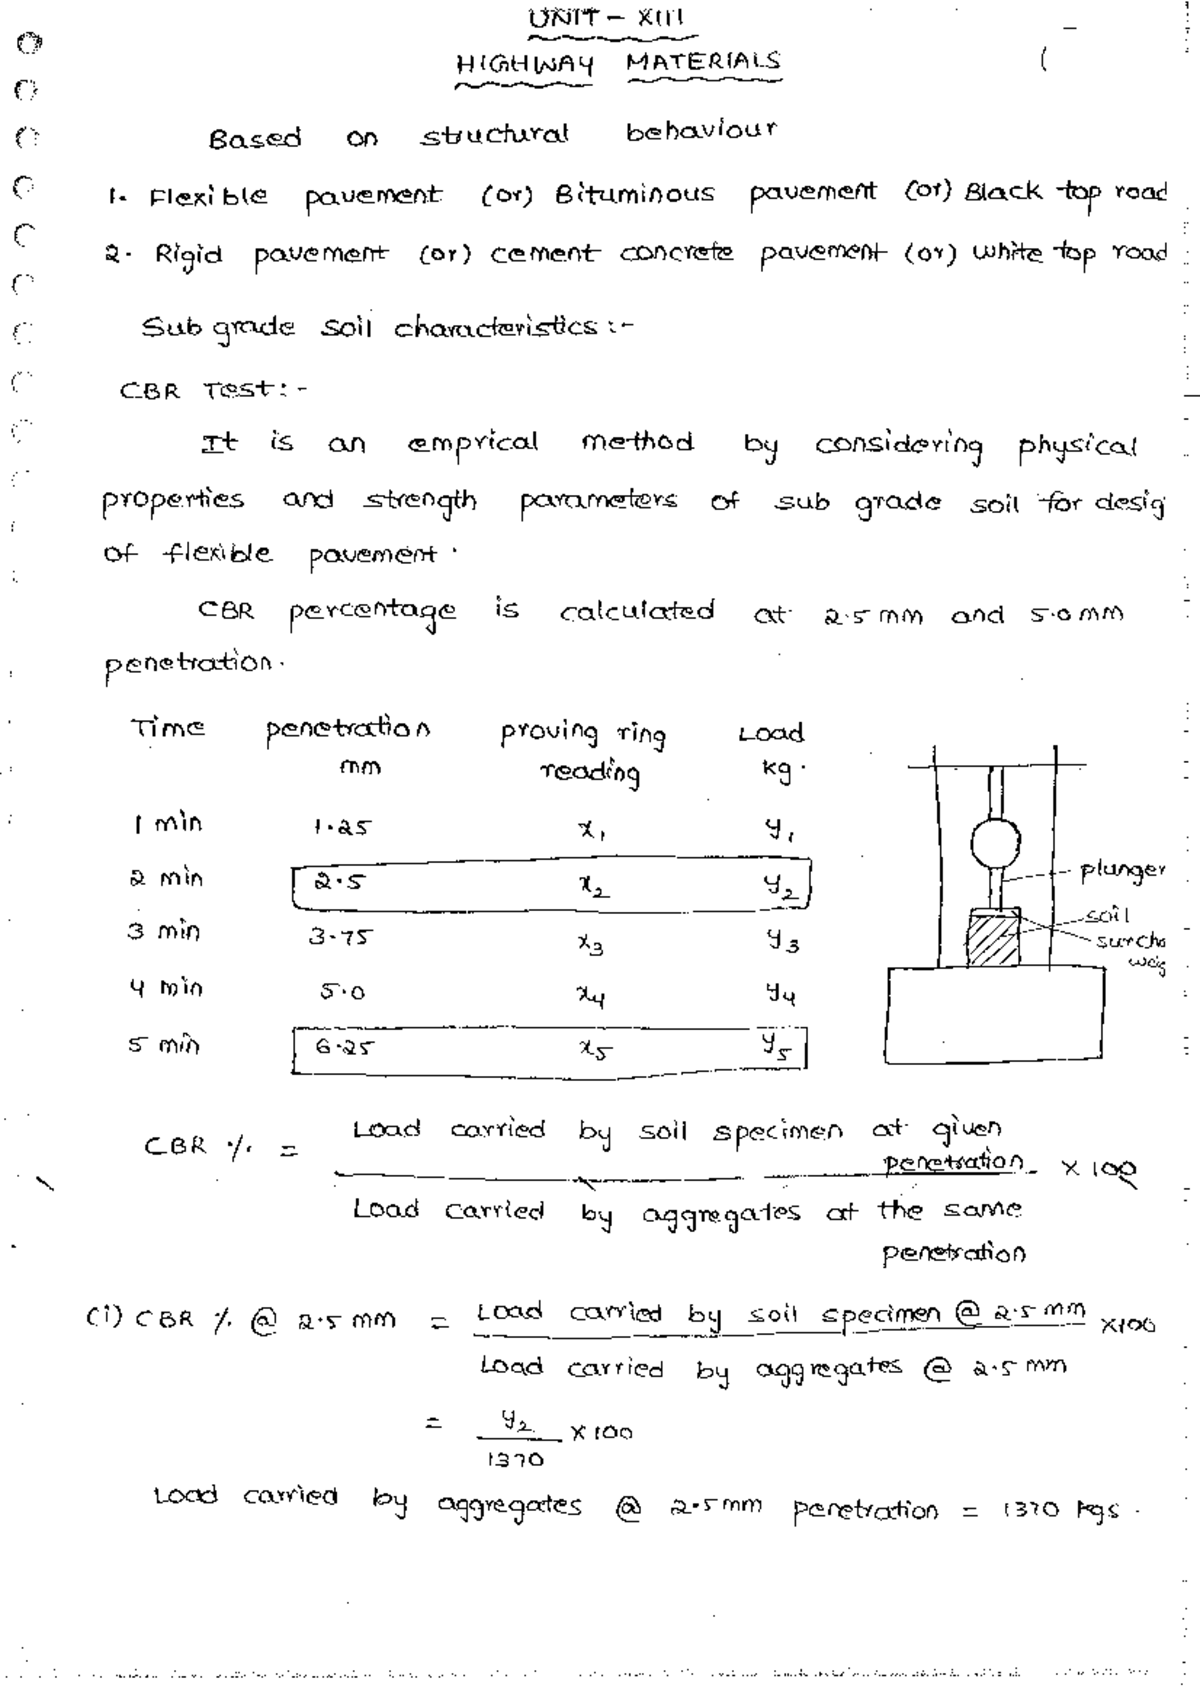 UNIT - XIII
HIGHWAY MATERIALS
Based on structural behaviour
1. Flexible pavement (or) Bituminous pavement (or) Black top road
2. Rigid pavement (or) cement concrete pavement (or) white top road
Sub grade soil characteristics :-
CBR Test: -
It is an emprical method by considering physical
properties and strength parameters of sub grade soil for desig
of flexible pavement.
CBR percentage is calculated at 2.5 mm and 5.0 mm
penetration.
Time penetration proving ring Load
mm reading kg.
1 min 1.25 x1 y1
2 min 2.5 x2 y2
3 min 3.75 x3 y3
4 min 5.0 x4 y4
5 min 6.25 x5 y5
plunger
soil
surcha
weig
Load carried by soil specimen at given
penetration
CBR % = × 100
Load carried by aggregates at the same
penetration
(i) CBR % @ 2.5 mm = Load carried by soil specimen @ 2.5 mm ×100
Load carried by aggregates @ 2.5 mm
= y2 × 100
1370
Load carried by aggregates @ 2.5 mm penetration = 1370 kgs.